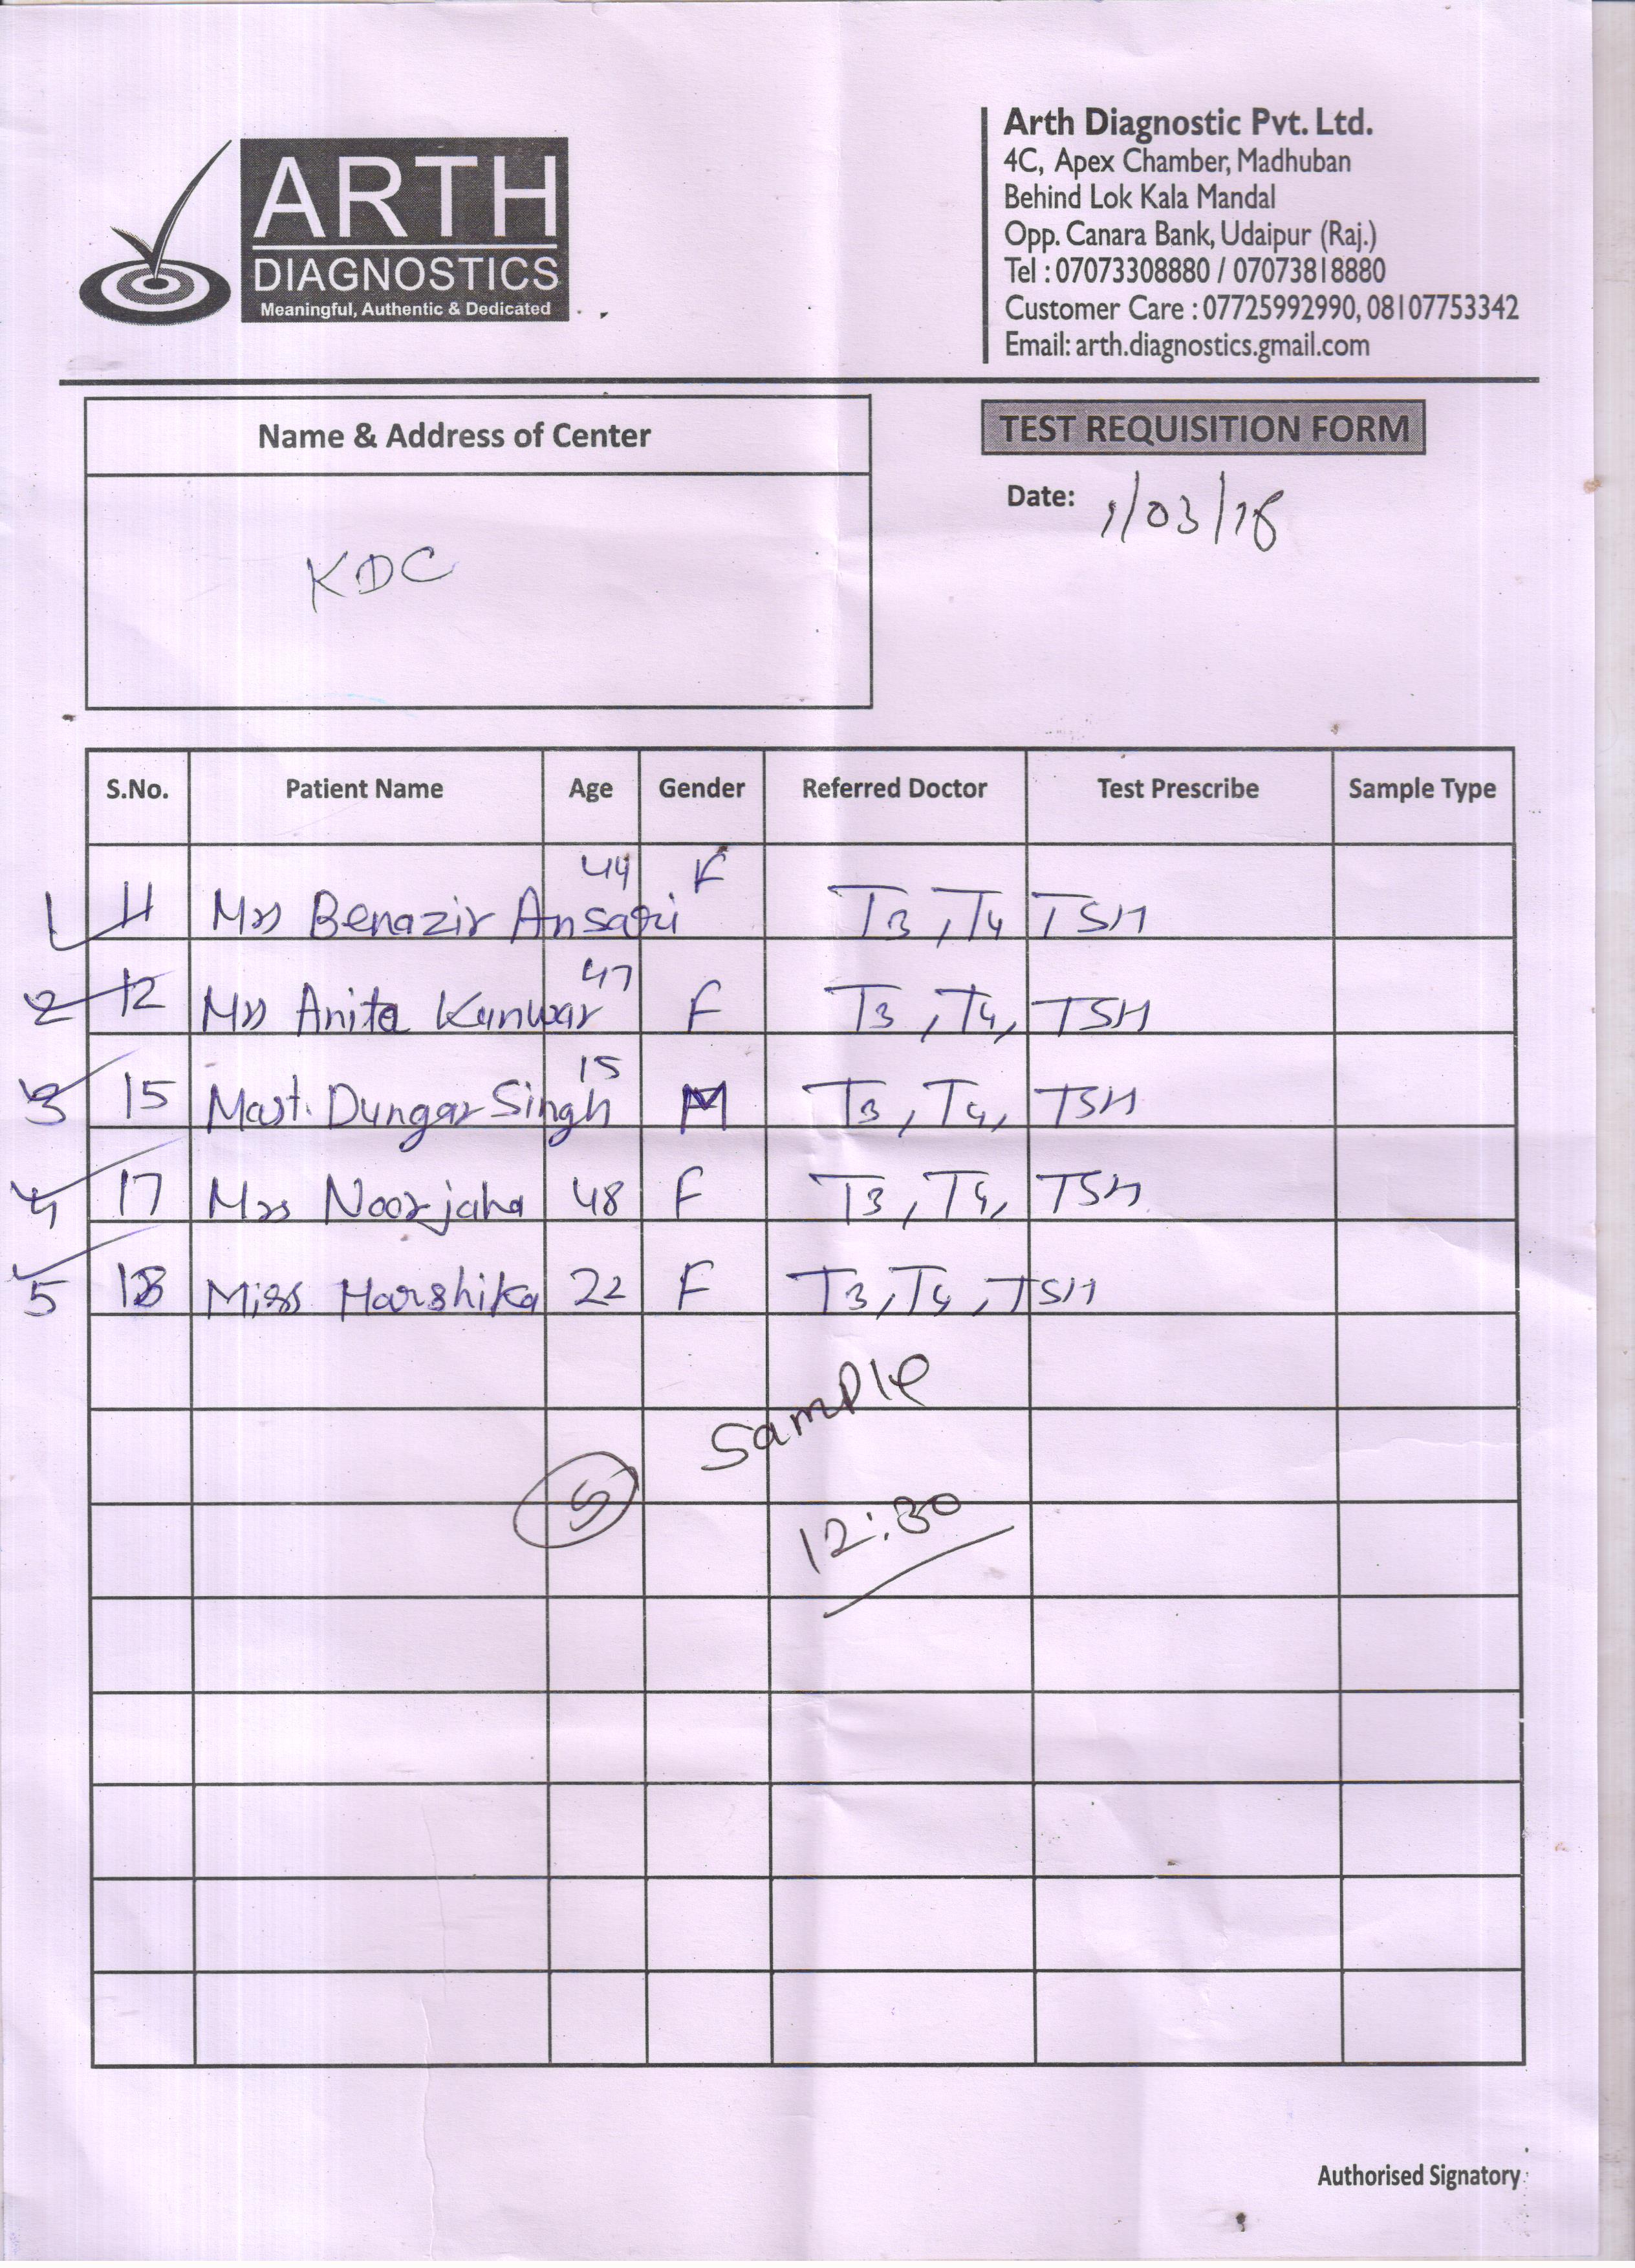 ARTH
DIAGNOSTICS
Meaningful, Authentic & Dedicated
Arth Diagnostic Pvt. Ltd.
4C, Apex Chamber, Madhuban
Behind Lok Kala Mandal
Opp. Canara Bank, Udaipur (Raj.)
Tel : 07073308880 / 07073818880
Customer Care : 07725992990, 08107753342
Email: arth.diagnostics.gmail.com
Name & Address of Center
KDC
TEST REQUISITION FORM
Date: 1/03/18
S.No. Patient Name Age Gender Referred Doctor Test Prescribe Sample Type
1 11 Mrs Benazir Ansari 44 F T3, T4 TSH
2 12 Mrs Anita Kunwar 47 F T3, T4, TSH
3 15 Mast. Dungar Singh 15 M T3, T4, TSH
4 17 Mrs Noorjaha 48 F T3, T4, TSH
5 18 Miss Harshika 22 F T3, T4, TSH
5 Sample
12:30
Authorised Signatory